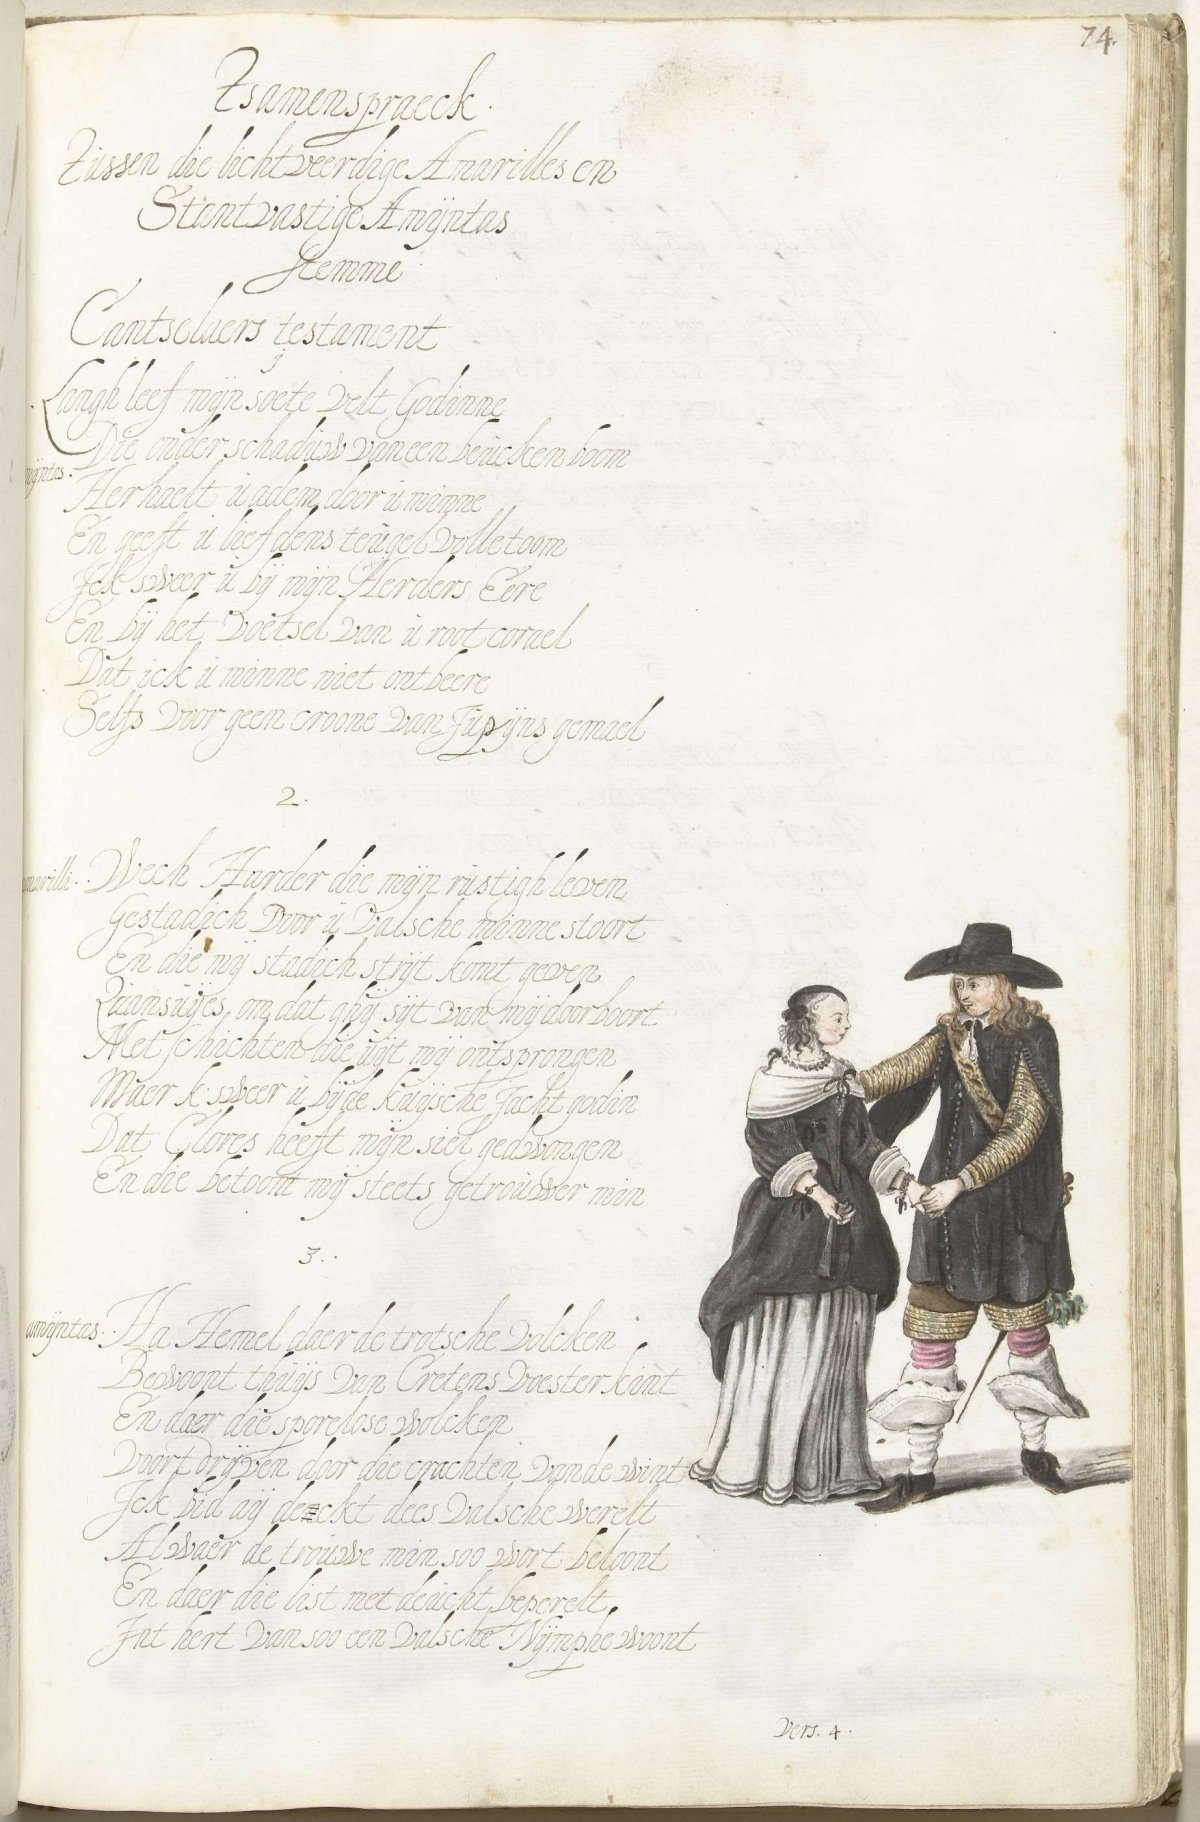 74.
Tsamenspraeck.
Tussen die lichtveerdige Amarilles en
Stantvastige Amÿntas
Stemme
Cantselaers testament
j
Langh leef mÿn soete velt Godinne
Die onder schaduw van een beucken boom
mÿntas.
Herhaelt u adem door u minne
En geeft u liefdens teugel volle toom
Ick sweer u bÿ mÿn Herders Eere
En bÿ het voetsel van u root corael
Dat ick u minne niet ontbeere
Selfs voor geen croone van Jupÿns gemael
2.
marilli. Wech Harder die mÿn rustigh leven
Gestadich door u valsche minne stoort
En die mÿ stadich strÿt komt geven
Quansuÿs, om dat ghÿ sÿt van mÿ doorboort
Met schichten die uÿt mÿ ontsprongen
Maer k sweer u bÿde kuÿsche Jacht godin
Dat Clores heeft mÿn siel gedwongen
En die betoont mÿ steets getrouwer min
3.
amÿntas. Ha Hemel daer de trotsche volcken
Bewoont thuÿs van Cretens voester kint
En daer die sporelose wolcken
Voort drÿven door die crachten vande wint
Ick bid aÿ denckt dees valsche werelt
Alwaer de trouwe min soo wort beloont
En daer die list met deucht beperelt
Int hert van soo een valsche Nÿmphe woont
Vers. 4.